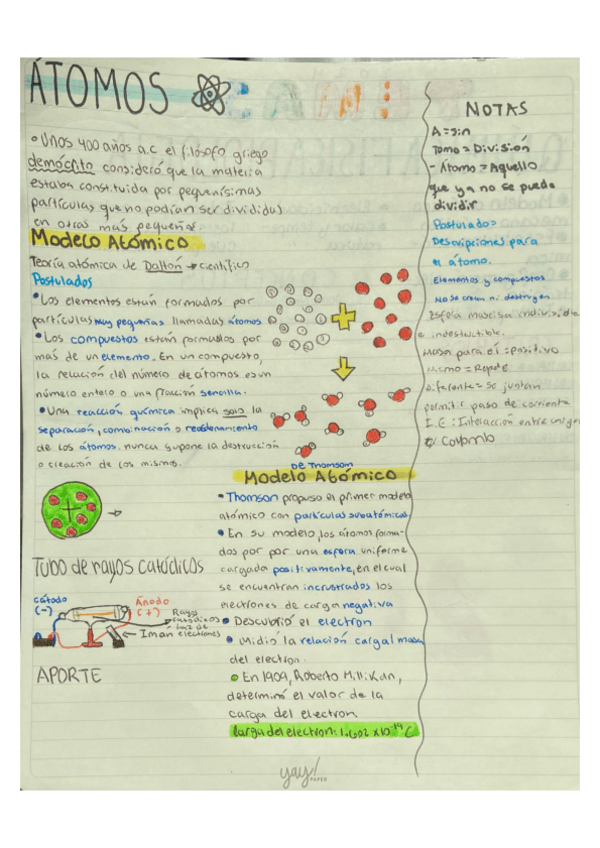 ÁTOMOS
• Unos 400 años a.c el filósofo griego
demócrito consideró que la materia
estaba constituida por pequeñísimas
partículas que no podían ser divididas
en otras más pequeñas
Modelo Atómico
Teoría atómica de Dalton → científico
Postulados
• Los elementos están formados por
partículas muy pequeñas llamadas átomos
• Los compuestos están formados por
más de un elemento. En un compuesto,
la relación del número de átomos es un
número entero o una fracción sencilla.
• Una reacción química implica solo la
separación, combinación o reordenamiento
de los átomos. nunca supone la destrucción
o creación de los mismos.
De Thomson
Modelo Atómico
• Thomson propuso el primer modelo
atómico con partículas subatómicas
• En su modelo, los átomos forma-
dos por por una esfera uniforme
cargada positivamente, en el cual
se encuentran incrustrados los
electrones de carga negativa
• Descubrió el electron
• Midió la relación carga/masa
del electron
• En 1909, Roberto Millikan,
determinó el valor de la
carga del electron
Carga del electron: 1.602 x 10⁻¹⁹ C
Tubo de rayos catódicos
cátodo
(-)
Ánodo
(+)
Rayos
catódicos
haz de
electrones
Imán
APORTE
NOTAS
A = sin
Tomo = División
- Átomo = Aquello
que ya no se puede
dividir
Postulado =
Descripciones para
el átomo.
Elementos y compuestos
No se crean ni destruyen
Esfera masisa individible
e indestuctible.
Masa para el = positivo
Mismo = Repele
Diferente = Se juntan
permitir paso de corriente
I.E : Interacción entre cargas
C/ Coulomb
yay!
PAPER